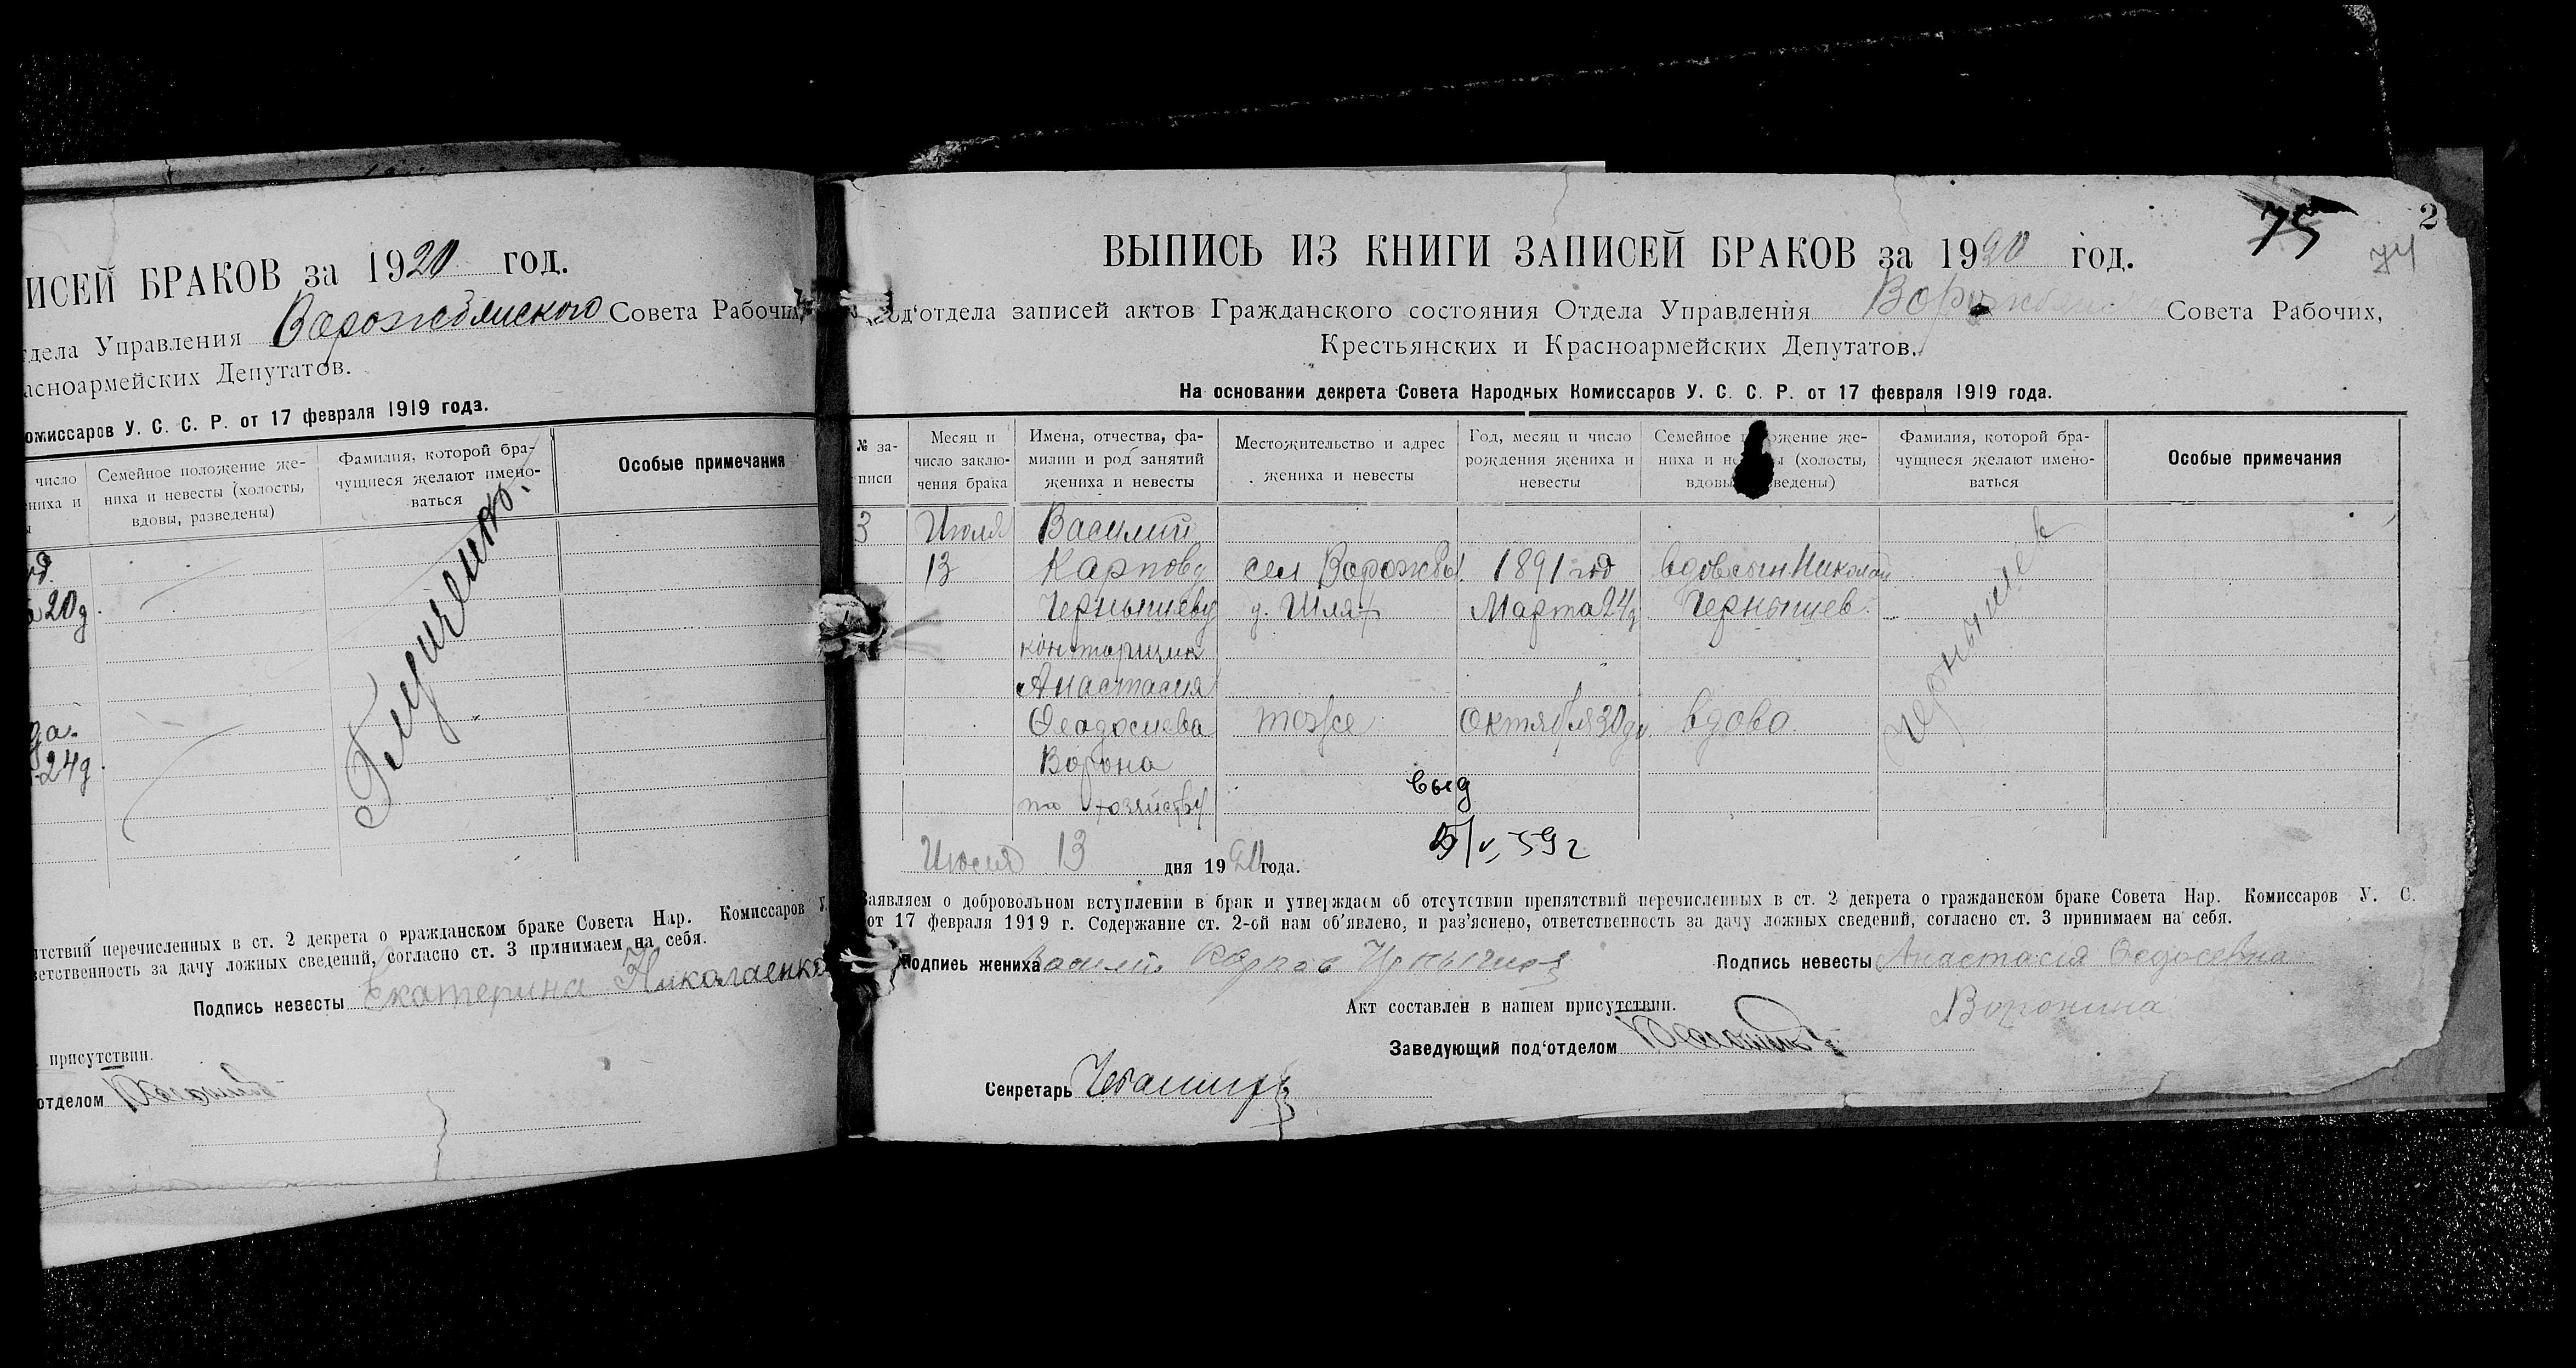 ИСЕЙ БРАКОВ за 1920 год.
тдела Управления Ворожбянского Совета Рабочих,
асноармейских Депутатов.
омиссаров У. С. С. Р. от 17 февраля 1919 года.
число
ниха и
Семейное положение же-
ниха и невесты (холосты,
вдовы, разведены)
Фамилия, которой бра-
чущиеся желают имено-
ваться
Особые примечания
20 д.
24 д.
итствий перечисленных в ст. 2 декрета о гражданском браке Совета Нар. Комиссаров У.
ветственность за дачу ложных сведений, согласно ст. 3 принимаем на себя.
Подпись невесты Екатерина Николаенко
присутствии.
отделом
2
75
74
ВЫПИСЬ ИЗ КНИГИ ЗАПИСЕЙ БРАКОВ за 1920 год.
од'отдела записей актов Гражданского состояния Отдела Управления Ворожбянского Совета Рабочих,
Крестьянских и Красноармейских Депутатов.
На основании декрета Совета Народных Комиссаров У. С. С. Р. от 17 февраля 1919 года.
№ за-
писи
Месяц и
число заклю-
чения брака
Имена, отчества, фа-
милии и род занятий
жениха и невесты
Местожительство и адрес
жениха и невесты
Год, месяц и число
рождения жениха и
невесты
Семейное положение же-
ниха и невесты (холосты,
вдовы, разведены)
Фамилия, которой бра-
чущиеся желают имено-
ваться
Особые примечания
3 Июля Василий
13 Карпову сел Ворожбы 1891 год вдов сын Николай
Чернышеву у. Шлях Марта 24 д Чернышев
конторщик
Анастасия
Феодосиева тоже Октября 30 дн вдова
Ворона
по хозяйству
Чернышев
выд
5/V, 59 г
Июля 13 дня 1920 года.
Заявляем о добровольном вступлении в брак и утверждаем об отсутствии препятствий перечисленных в ст. 2 декрета о гражданском браке Совета Нар. Комиссаров У. С.
от 17 февраля 1919 г. Содержание ст. 2-ой нам об'явлено, и раз'яснено, ответственность за дачу ложных сведений, согласно ст. 3 принимаем на себя.
Подпись жениха Василий Карпов Подпись невесты Анастасія Федосевна
Воронина
Акт составлен в нашем присутствии.
Заведующий под'отделом
Секретарь